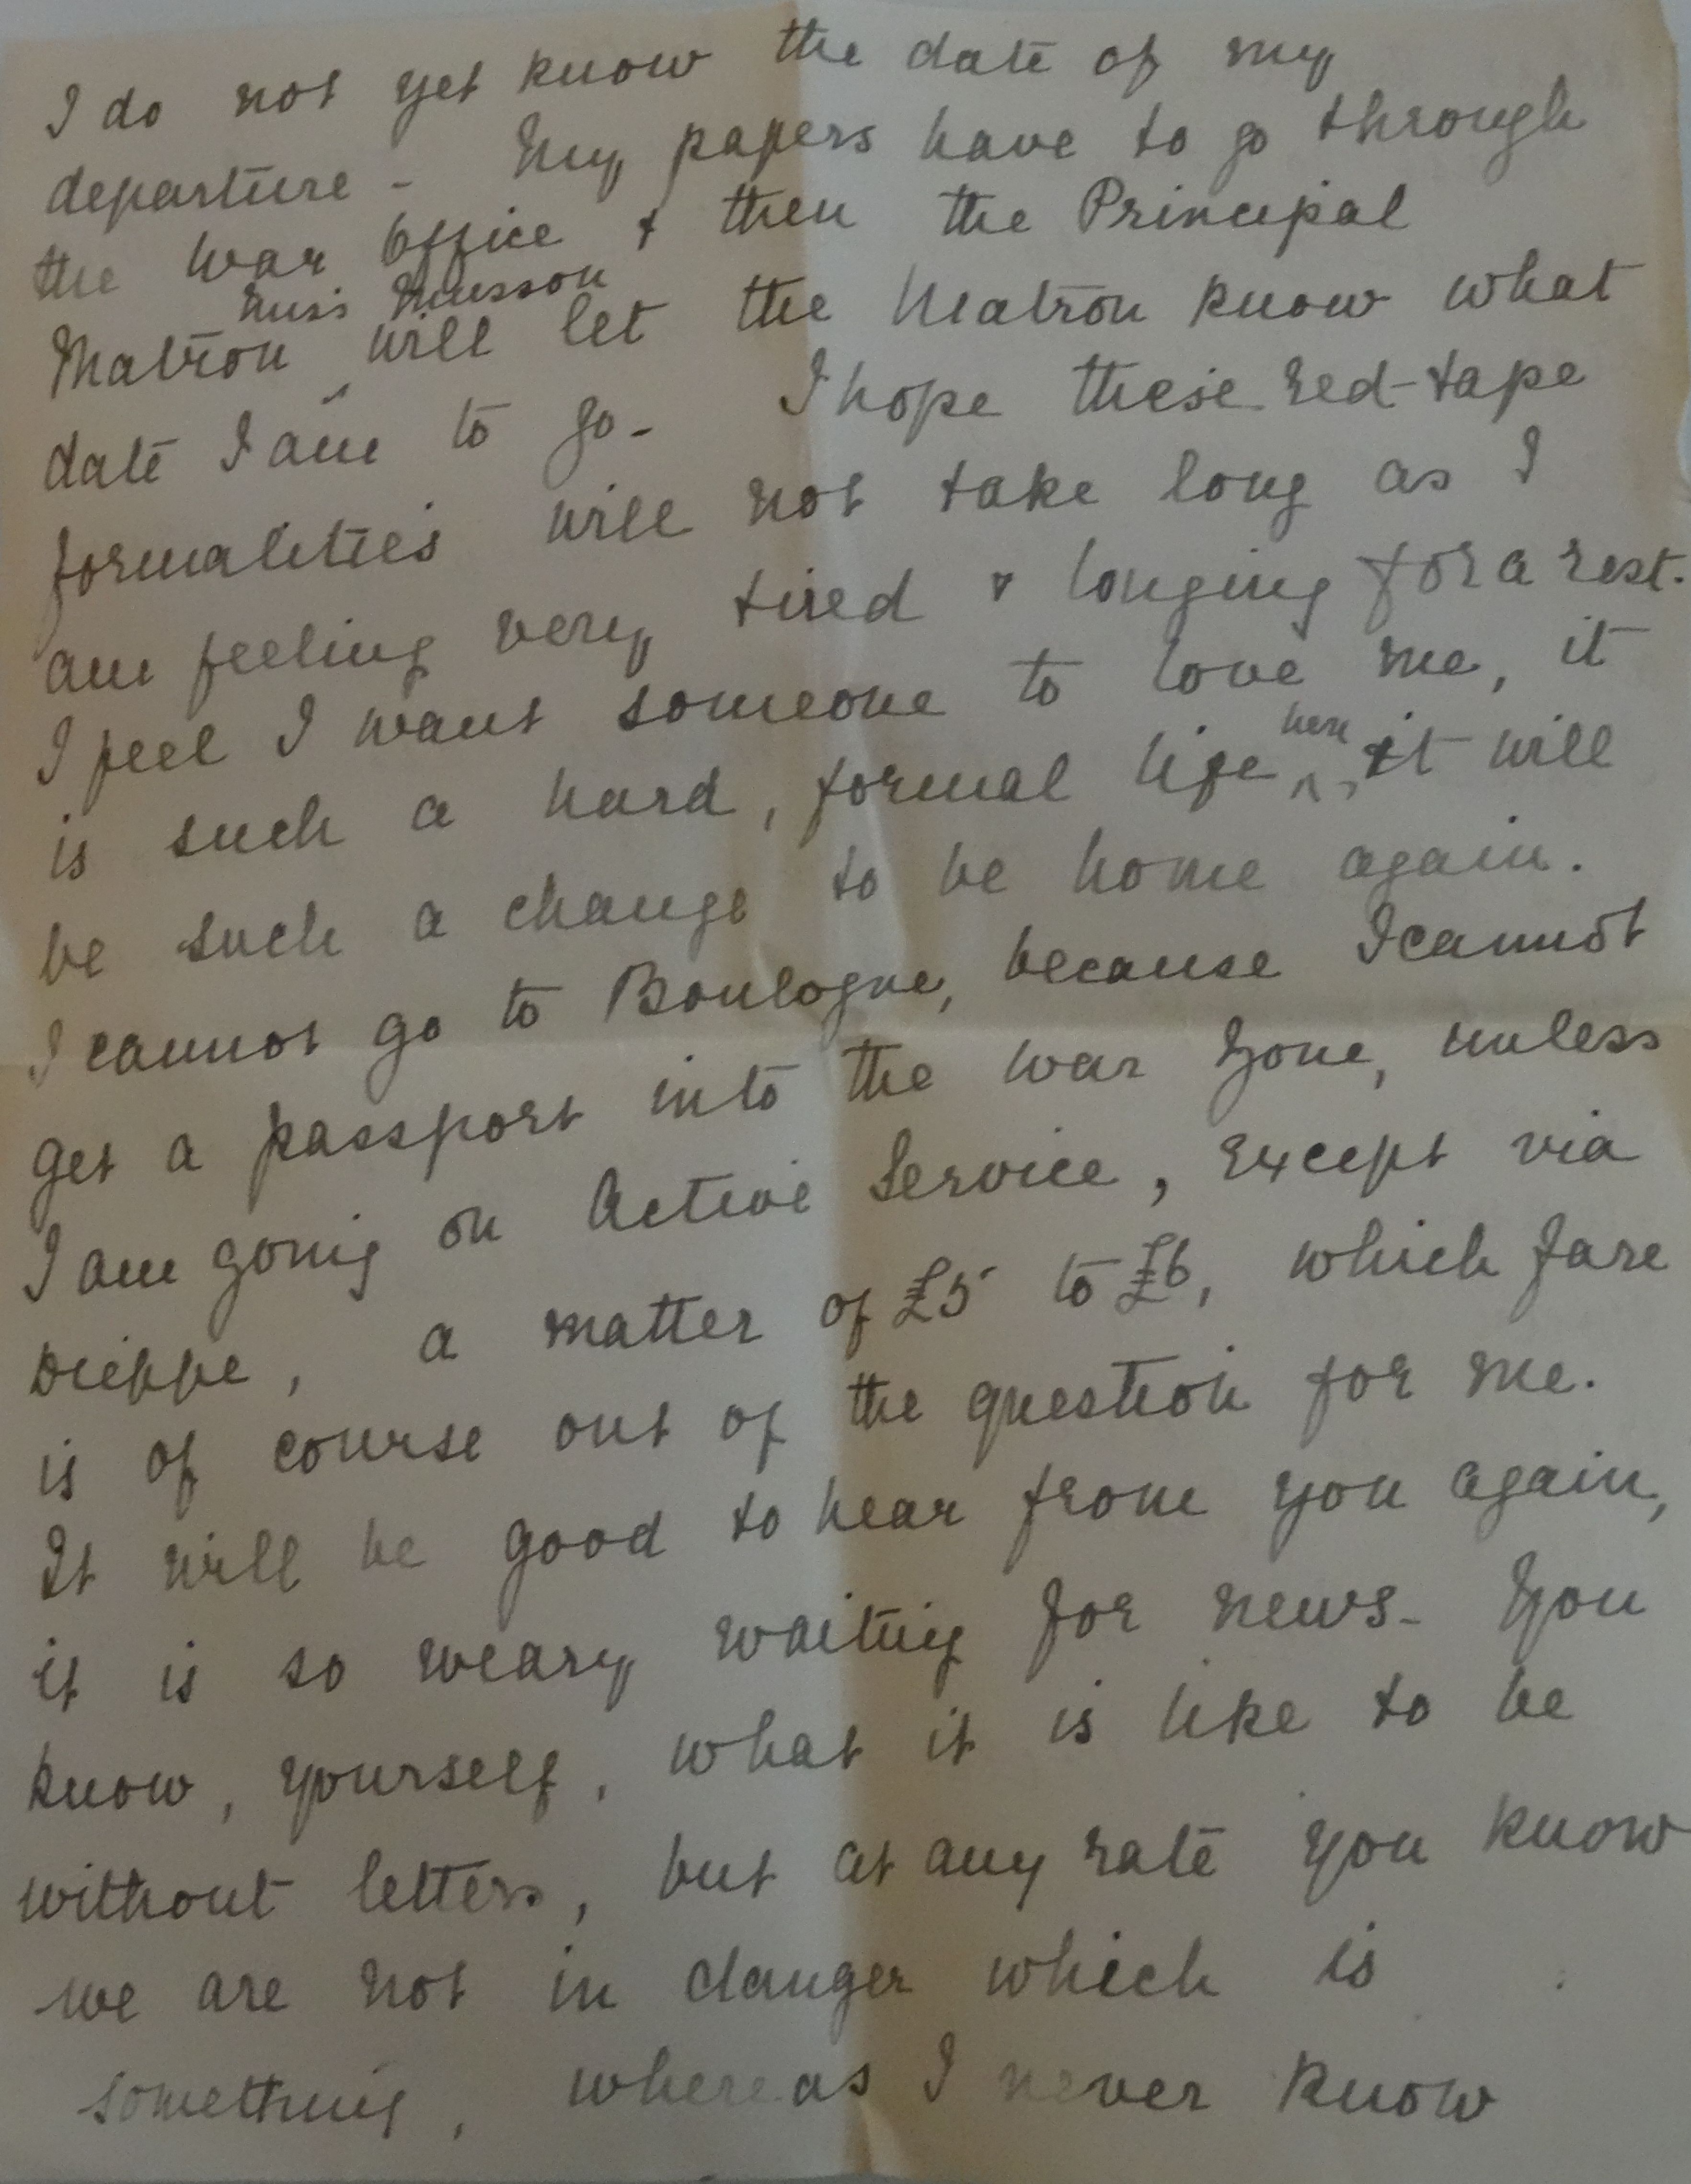 I do not yet know the date of my
departure - My papers have to go through
the War Office & then the Principal
Miss Musson
Matron ^ will let the Matron know what
date I am to go - I hope these red-tape
formalities will not take long as I
am feeling very tired & longing for a rest.
I feel I want someone to love me, it
here
is such a hard, formal life ^, it will
be such a change to be home again.
I cannot go to Boulogne, because I cannot
get a passport into the war zone, unless
I am going on Active Service, except via
Dieppe, a matter of £5 to £6, which fare
is of course out of the question for me.
It will be good to hear from you again,
it is so weary waiting for news - You
know, yourself, what it is like to be
without letters, but at any rate you know
we are not in danger which is
something, whereas I never know